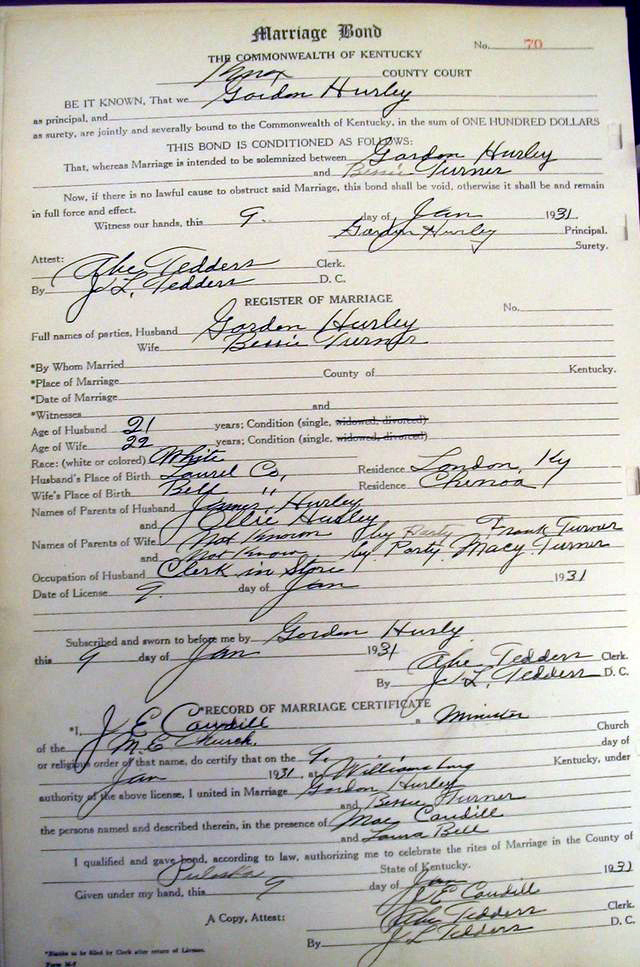 Marriage Bond
No. 70
THE COMMONWEALTH OF KENTUCKY
Knox COUNTY COURT
BE IT KNOWN, That we Gordon Hurley
as principal, and
as surety, are jointly and severally bound to the Commonwealth of Kentucky, in the sum of ONE HUNDRED DOLLARS
THIS BOND IS CONDITIONED AS FOLLOWS:
That, whereas Marriage is intended to be solemnized between Gordon Hurley
and Bessie Turner
Now, if there is no lawful cause to obstruct said Marriage, this bond shall be void, otherwise it shall be and remain
in full force and effect.
Witness our hands, this 9 day of Jan 1931.
Gordon Hurley Principal.
Surety.
Attest: Abe Tedders Clerk.
By J. L. Tedders D. C.
REGISTER OF MARRIAGE
No.
Full names of parties, Husband Gordon Hurley
Wife Bessie Turner
*By Whom Married
*Place of Marriage County of Kentucky.
*Date of Marriage
*Witnesses and
Age of Husband 21 years; Condition (single, widowed, divorced)
Age of Wife 22 years; Condition (single, widowed, divorced)
Race: (white or colored) White
Husband's Place of Birth Laurel Co, Residence London, Ky
Wife's Place of Birth Bell " Residence Chenoa
Names of Parents of Husband James Hurley
and Ollie Hurley
Names of Parents of Wife Not Known by Party Frank Turner
and Not Know by Party Macy Turner
Occupation of Husband Clerk in Store
Date of License 9 day of Jan 1931
Subscribed and sworn to before me by Gordon Hurly
this 9 day of Jan 1931 Abe Tedders Clerk.
By J. L. Tedders D. C.
*RECORD OF MARRIAGE CERTIFICATE
*I, J E Caudill a Minister
of the M. E Church. Church
or religious order of that name, do certify that on the 9 day of
Jan 1931, at Williamsburg Kentucky, under
authority of the above license, I united in Marriage Gordon Hurley
and Bessie Turner
the persons named and described therein, in the presence of Mae Caudill
and Laura Bell
I qualified and gave bond, according to law, authorizing me to celebrate the rites of Marriage in the County of
Pulaski State of Kentucky.
Given under my hand, this 9 day of Jan 1931
J E Caudill
A Copy, Attest: Abe Tedders Clerk.
By J L Tedders D. C.
*Blanks to be filed by Clerk after return of License.